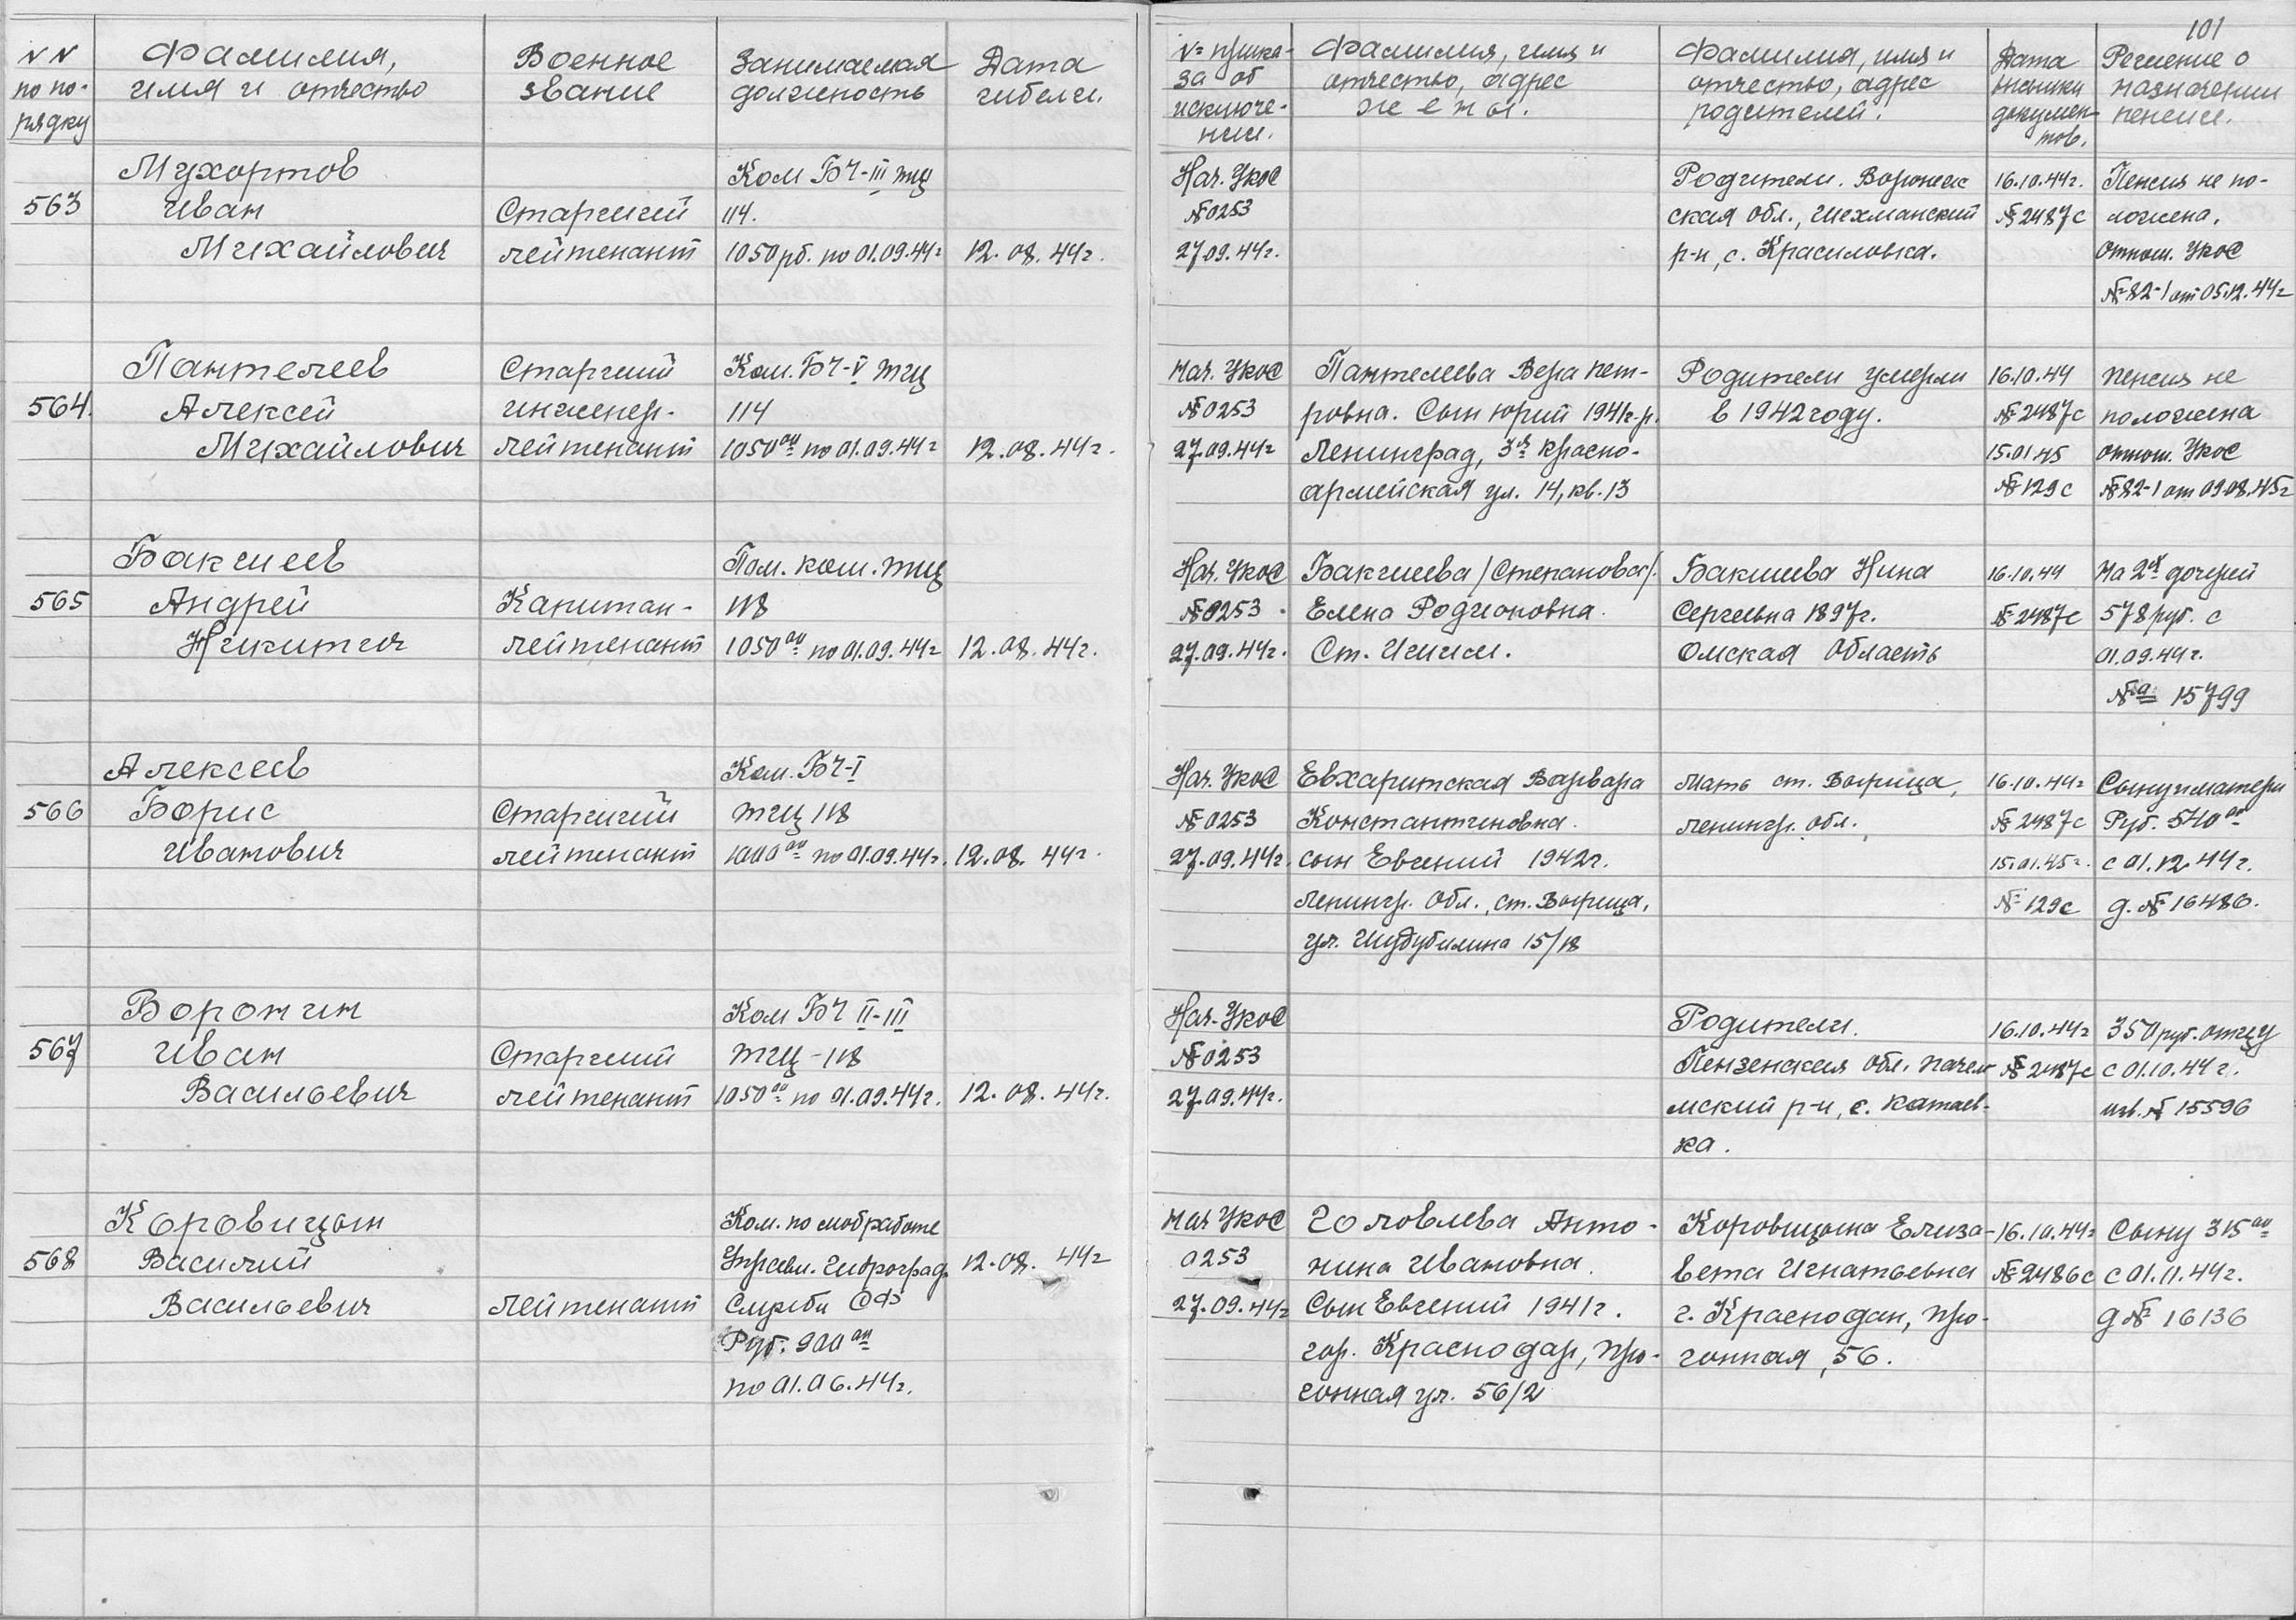 101
NN
по по-
рядку
Фамилия,
имя и отчество
Военное
звание
Занимаемая
должность
Дата
гибели.
№ прика-
за об
исключе-
нии.
Фамилия, имя и
отчество, адрес
жены.
Фамилия, имя и
отчество, адрес
родителей.
Дата
высылки
докумен-
тов.
Решение о
назначении
пенсии.
563
Мухортов
Иван
Михайлович
Старший
лейтенант
Ком БЧ-III тщ
114.
1050 рб. по 01.09.44г
12.08.44г.
Нач. УКОС
№0253
27.09.44г.
Родители. Воронеж
ская обл., Шехманский
р-н, с. Красиловка.
16.10.44г.
№2487с
Пенсия не по-
ложена.
Отнош. УКОС
№82-1 от 05.12.44г
564.
Пантелеев
Алексей
Михайлович
Старший
инженер-
лейтенант
Ком. БЧ-V тщ
114
1050 00 по 01.09.44г
12.08.44г.
Нач. УКОС
№0253
27.09.44г
Пантелеева Вера Пет-
ровна. Сын Юрий 1941г.р.
Ленинград, 3я Красно-
армейская ул. 14, кв. 13
Родители умерли
в 1942 году.
16.10.44
№2487с
15.01.45
№129с
Пенсия не
положена
Отнош. УКОС
№82-1 от 09.08.45г
565
Бакшеев
Андрей
Никитич
Капитан-
лейтенант
Пом. ком. тщ
118
1050 00 по 01.09.44г
12.08.44г.
Нач. УКОС
№0253
27.09.44г.
Бакшеева /Степановая/.
Елена Родионовна.
Ст. Ишим.
Бакшеева Нина
Сергеевна 1897г.
Омская область
16.10.44
№2487с
На 2х дочерей
578 руб. с
01.09.44г.
№ 15799
566
Алексеев
Борис
Иванович
Старший
лейтенант
Ком. БЧ-I
тщ 118
1000 00 по 01.09.44г.
12.08.44г.
Нач. УКОС
№0253
27.09.44г.
Евхаритская Варвара
Константиновна.
сын Евгений 1942г.
Ленингр. обл., ст. Вырица,
ул. 15/18
Мать ст. Вырица,
Ленингр. обл.
16.10.44г
№2487с
15.01.45г.
№129с
Сыну и матери
Руб. 540 00
с 01.12.44г.
д. №16486.
567
Воронин
Иван
Васильевич
Старший
лейтенант
Ком БЧ II-III
тщ-118
1050 00 по 01.09.44г.
12.08.44г.
Нач. УКОС
№0253
27.09.44г.
Родители.
Пензенская обл. Пачел
мский р-н, с. Катаев-
ка.
16.10.44г
№2487с
350 руб. отцу
с 01.10.44г.
№ 15596
568
Коровицын
Василий
Васильевич
лейтенант
Ком. по мобработе
Управл. Гидрограф.
Службы СФ
Руб. 900 00
по 01.06.44г.
12.08.44г
Нач УКОС
0253
27.09.44г
Головлева Анто-
нина Ивановна.
Сын Евгений 1941г.
гор. Краснодар, Про-
гонная ул. 56/2
Коровицына Елиза-
вета Игнатьевна
г. Краснодан, Про-
гонная, 56.
16.10.44г
№2486с
Сыну 315 00
с 01.11.44г.
д № 16136